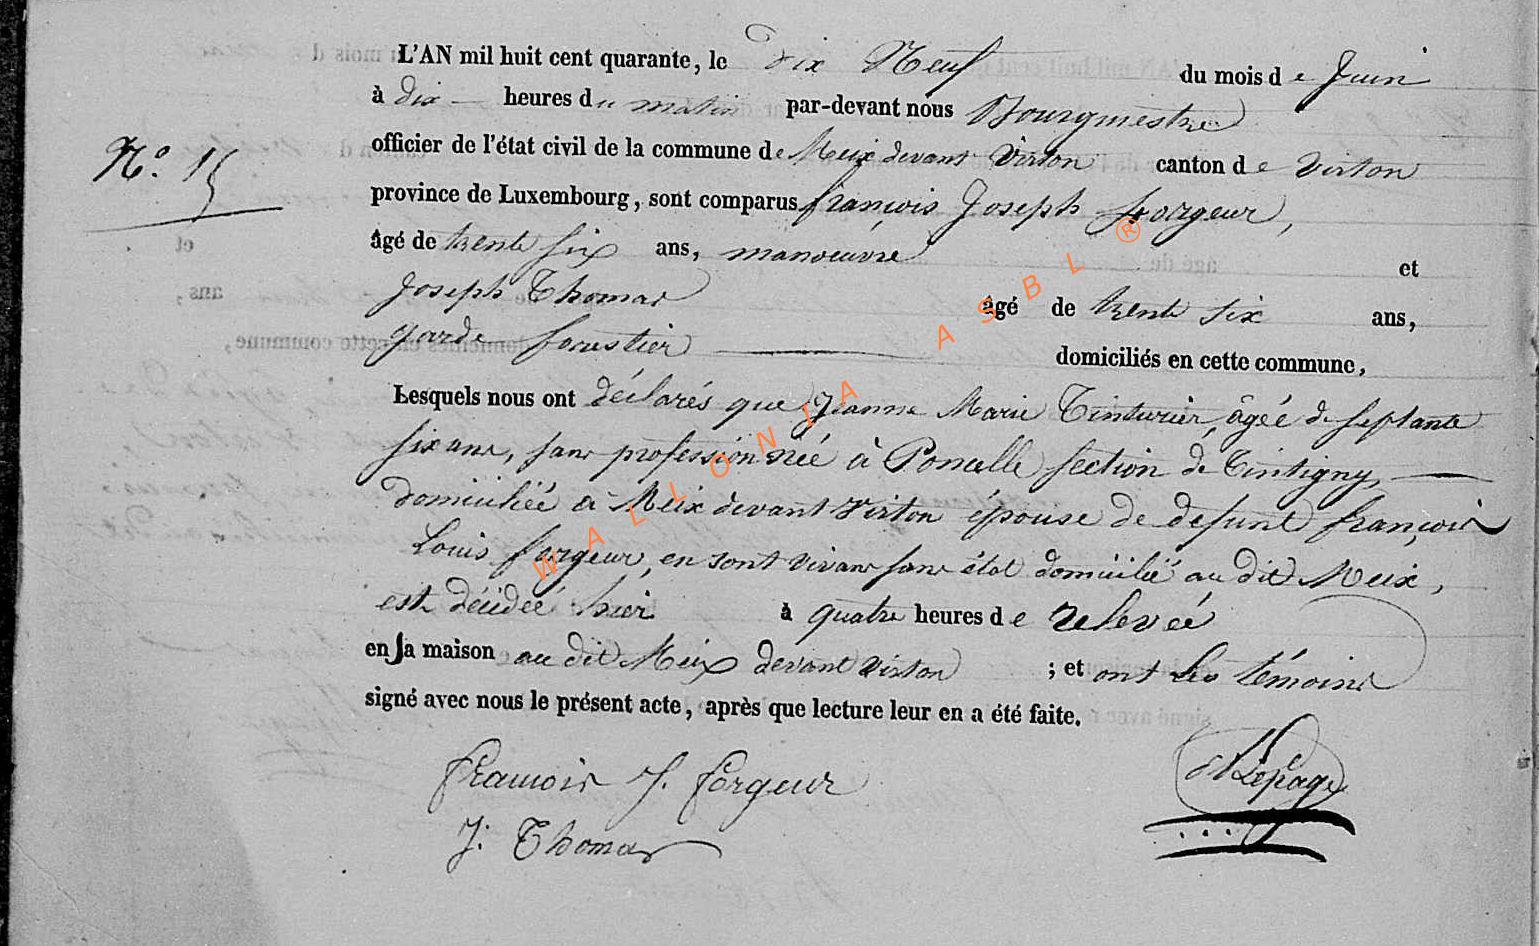 L'AN mil huit cent quarante, le dix Neuf du mois de Juin
à dix heures du matin par-devant nous Bourgmestre
officier de l'état civil de la commune de Meix devant Virton canton de Virton
N.° 15
province de Luxembourg, sont comparus françois Joseph forgeur,
âgé de trente six ans, manoeuvre et
Joseph Thomas âgé de trente six ans,
garde forestier domiciliés en cette commune,
Lesquels nous ont déclarés que Jeanne Marie Tinturier, âgéé de septante
six ans, sans profession néé à Poncelle section de Tintigny,
domiciliéé à Meix devant Virton épouse de defunt françois
Louis forgeur, en sont vivans sans état domicilié au dit Meix,
est décidéé hier à quatre heures de relevéé
en sa maison au dit Meix devant Virton ; et ont les témoins
signé avec nous le présent acte, après que lecture leur en a été faite.
francois J. forgeur
Lepage
J. Thomas
WALLONIA ASBL ®